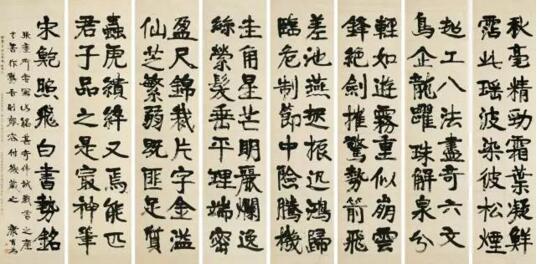 秋毫精勁霜葉凝鮮
霑此瑤波染彼松煙
超工八法盡奇六文
鳥企龍躍珠解泉分
輕如遊霧重似崩雲
鋒絕劍摧驚勢箭飛
差池燕起振迅鴻歸
臨危制節中險騰機
圭角星芒明麗爛逸
絲縈髮垂平理端密
盈尺錦裁片字金溢
仙芝繁弱既匪足質
蟲虎又焉能匹
君子品之是㝡神筆
宋鮑照飛白書勢銘
康有為